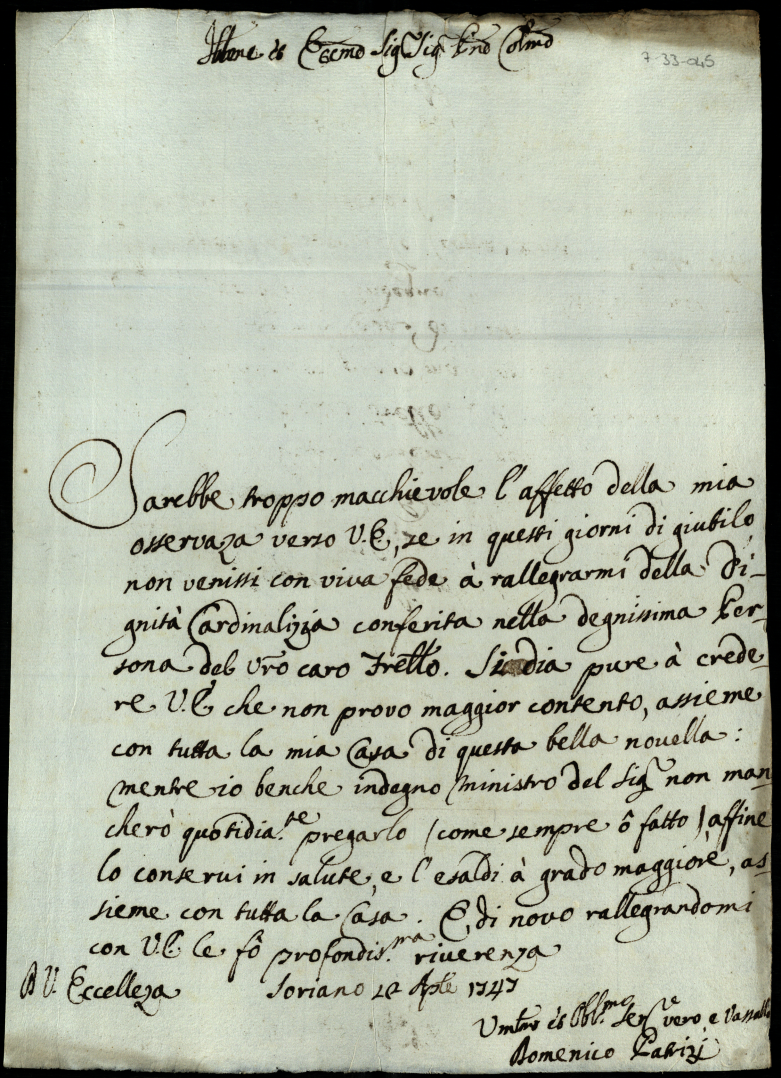 Illmo ed Eccmo Sigr Sigr Prone Colmo
7-33-045
Sarebbe troppo macchievole l'affetto della mia
osservaza verso V.E., se in questi giorni di giubilo
non venissi con viva fede à rallegrarmi della Di-
gnità Cardinalizia conferita nella degnissima Per-
sona del vr̃o caro Frello. Si dia pure à crede-
re V.E. che non provo maggior contento, assieme
con tutta la mia Casa di questa bella novella:
mentre io benche indegno Ministro del Sigr non man
cherò quotidia.te pregarlo (come sempre ô fatto) affine
lo conservi in salute, e l'esaldi à grado maggiore, as
sieme con tutta la Casa. E di novo rallegrandomi
con V.E. le fò profondis.ma riverenza
D V. Eccelleza Soriano Aple 1747
Obbl.mo Serve vero, e Vassallo
Domenico Patrizi